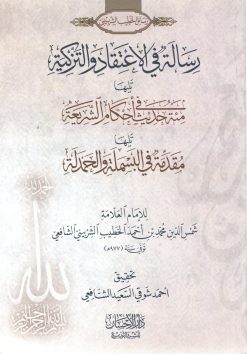 رسائل الخطيب الشربيني
رسالة في الاعتقاد والتزكية
تليها
مئة حديث في أحكام الشريعة
تليها
مقدمة في البسملة والحمدلة
للإمام العلامة
شمس الدين محمد بن أحمد الخطيب الشربيني الشافعي
توفي سنة (٩٧٧هـ)
تحقيق
أحمد شوقي السعيد الشافعي
الحمد لله
بسم الله الرحمن الرحيم
دار الإحسان